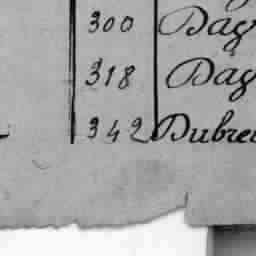 300 Dag
318 Dag
342 Dubre